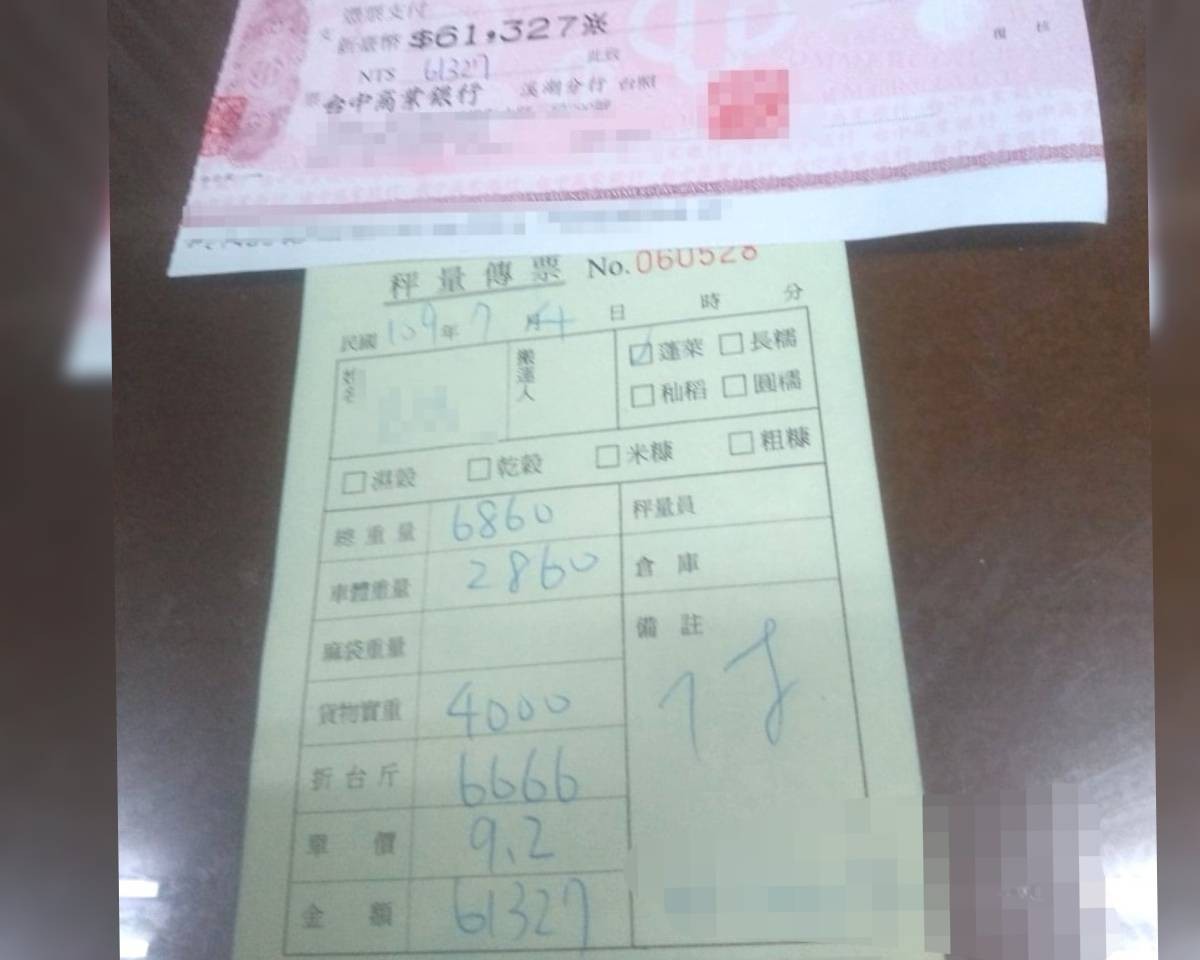 憑票支付
新臺幣 $61,327※
NT$ 61327 此致
台中商業銀行 溪湖分行 台照
秤量傳票 No. 060528
民國 109 年 7 月 4 日 時 分
姓名 搬運人 ☑ 蓬萊 □ 長糯
□ 秈稻 □ 圓糯
□ 濕穀 □ 乾穀 □ 米糠 □ 粗糠
總重量 6860 秤量員
車體重量 2860 倉庫
麻袋重量 備註
貨物實重 4000
折台斤 6666
單價 9.2
金額 61327